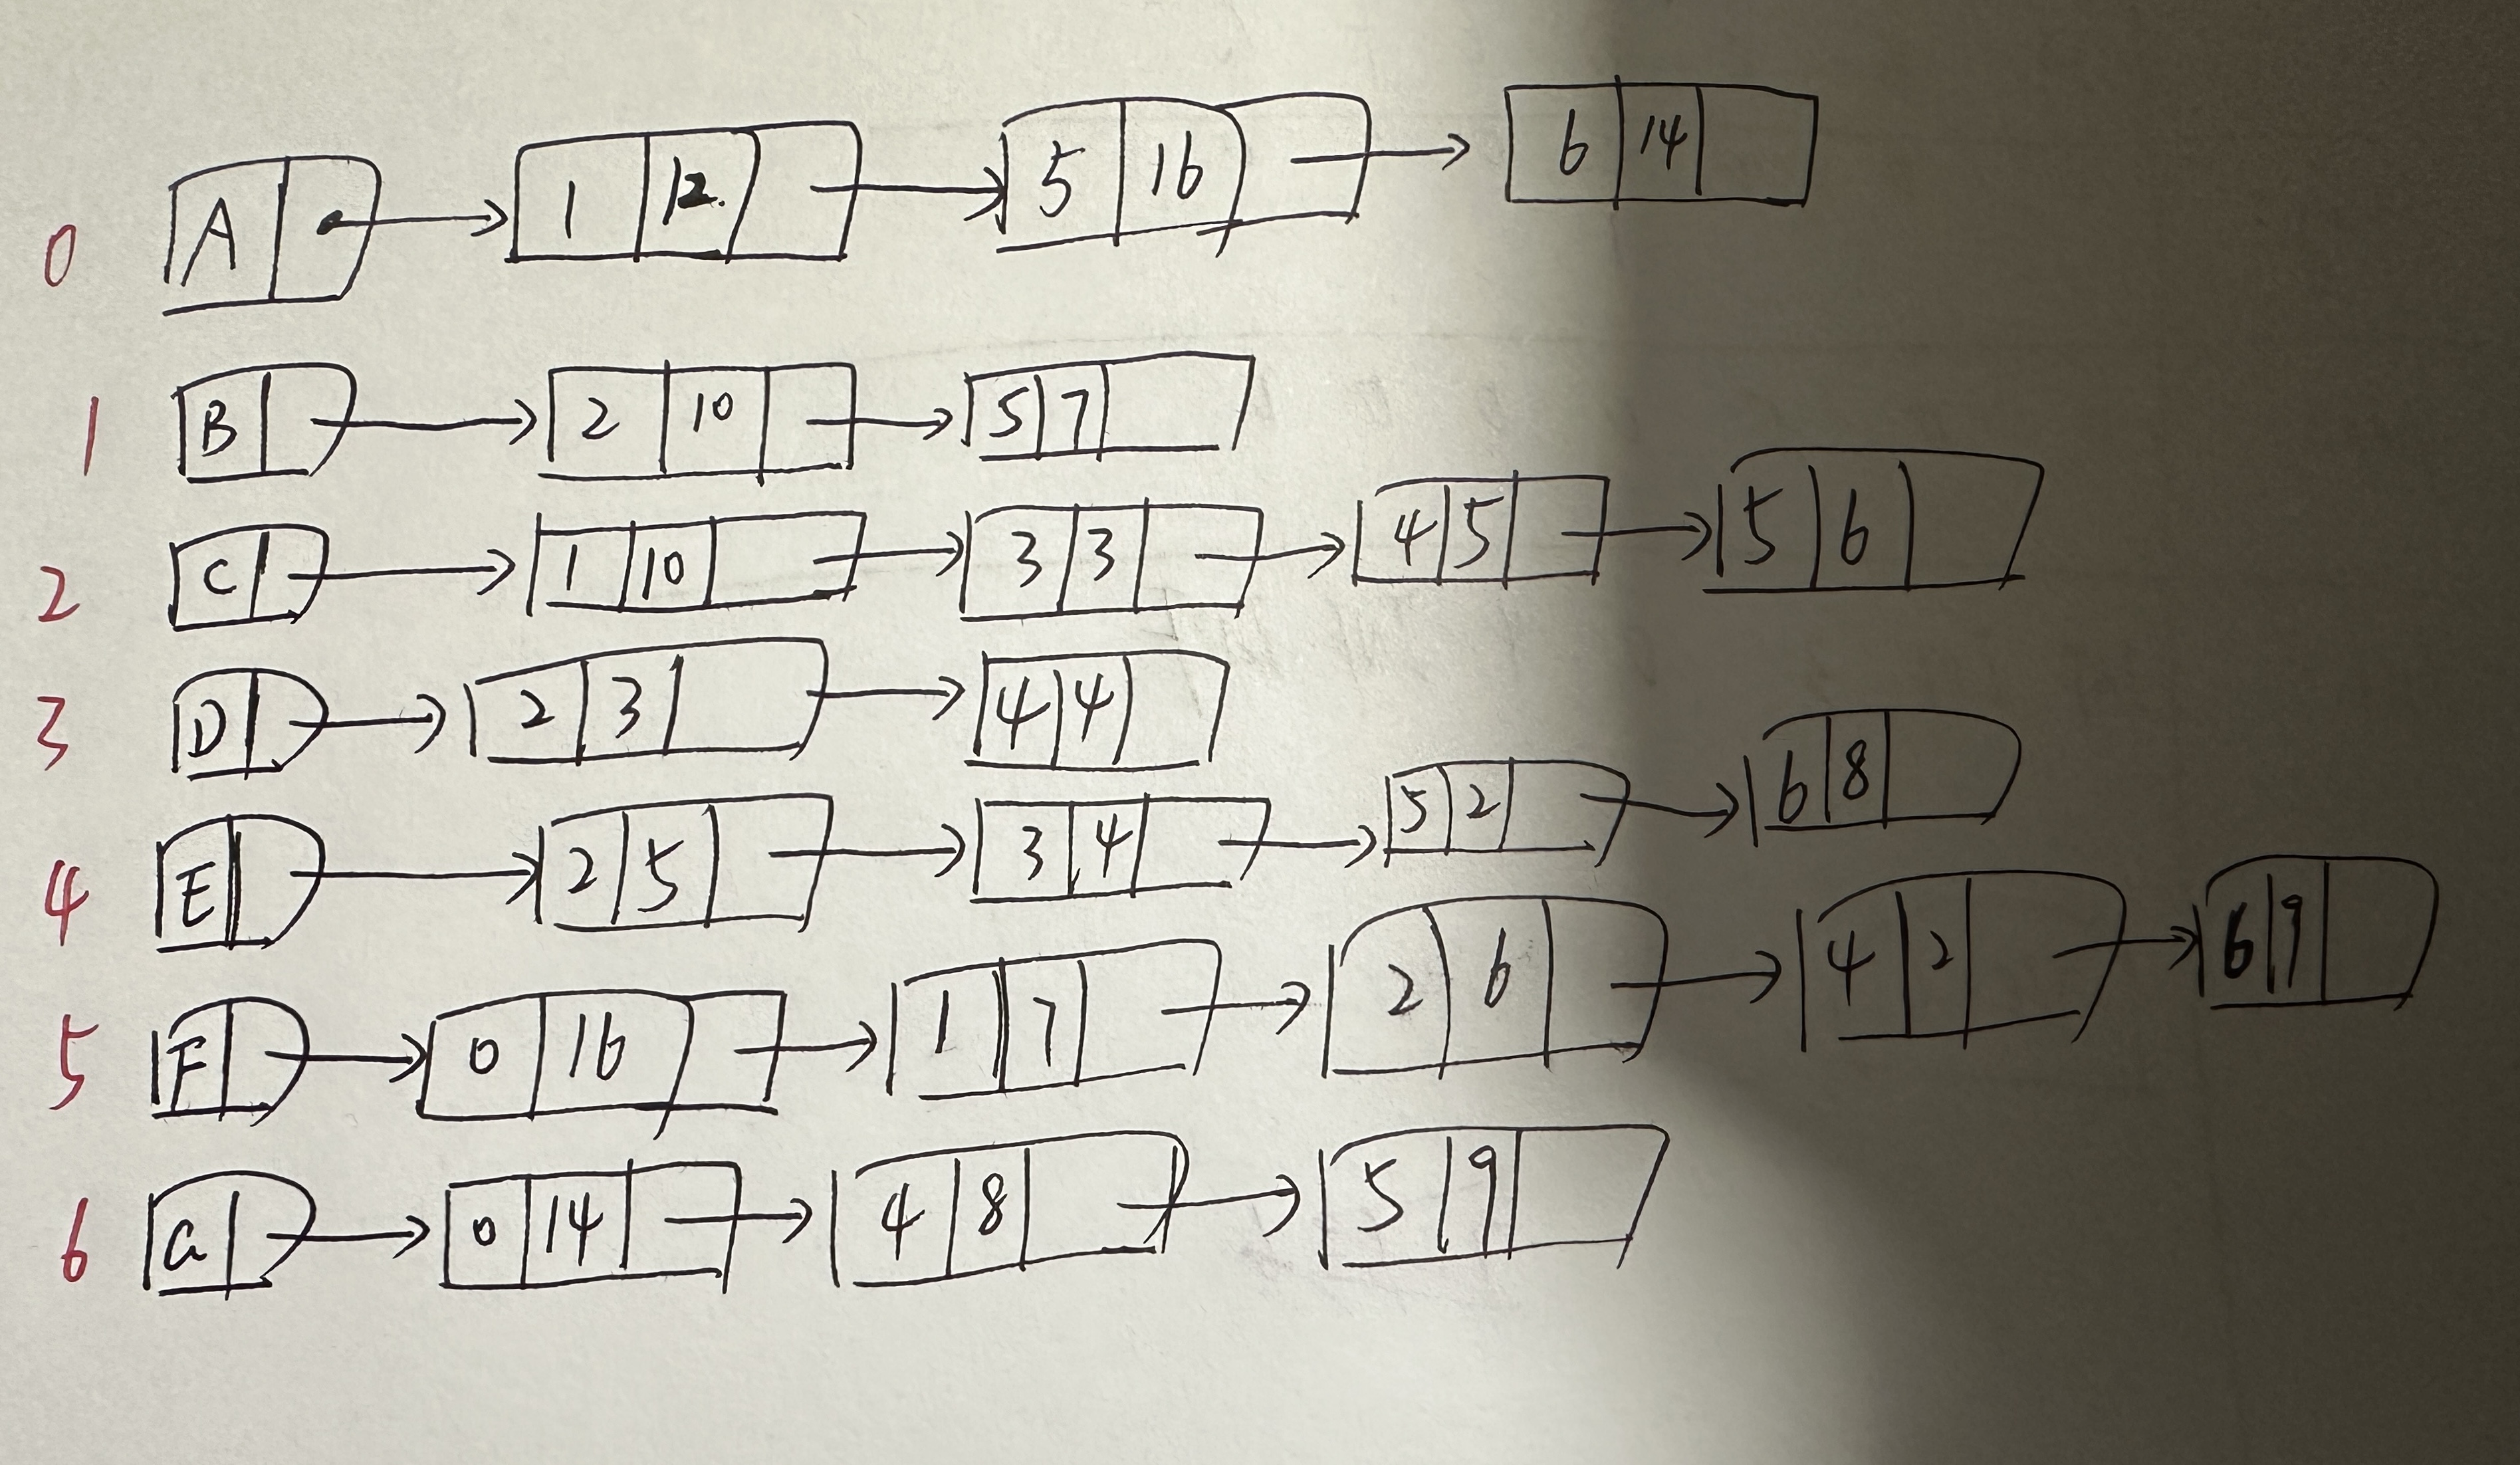 0 A 1 12. 5 16 6 14
1 B 2 10 5 7
2 C 1 10 3 3 4 5 5 6
3 D 2 3 4 4
4 E 2 5 3 4 5 2 6 8
5 F 0 16 1 7 2 6 4 2 6 9
6 G 0 14 4 8 5 9